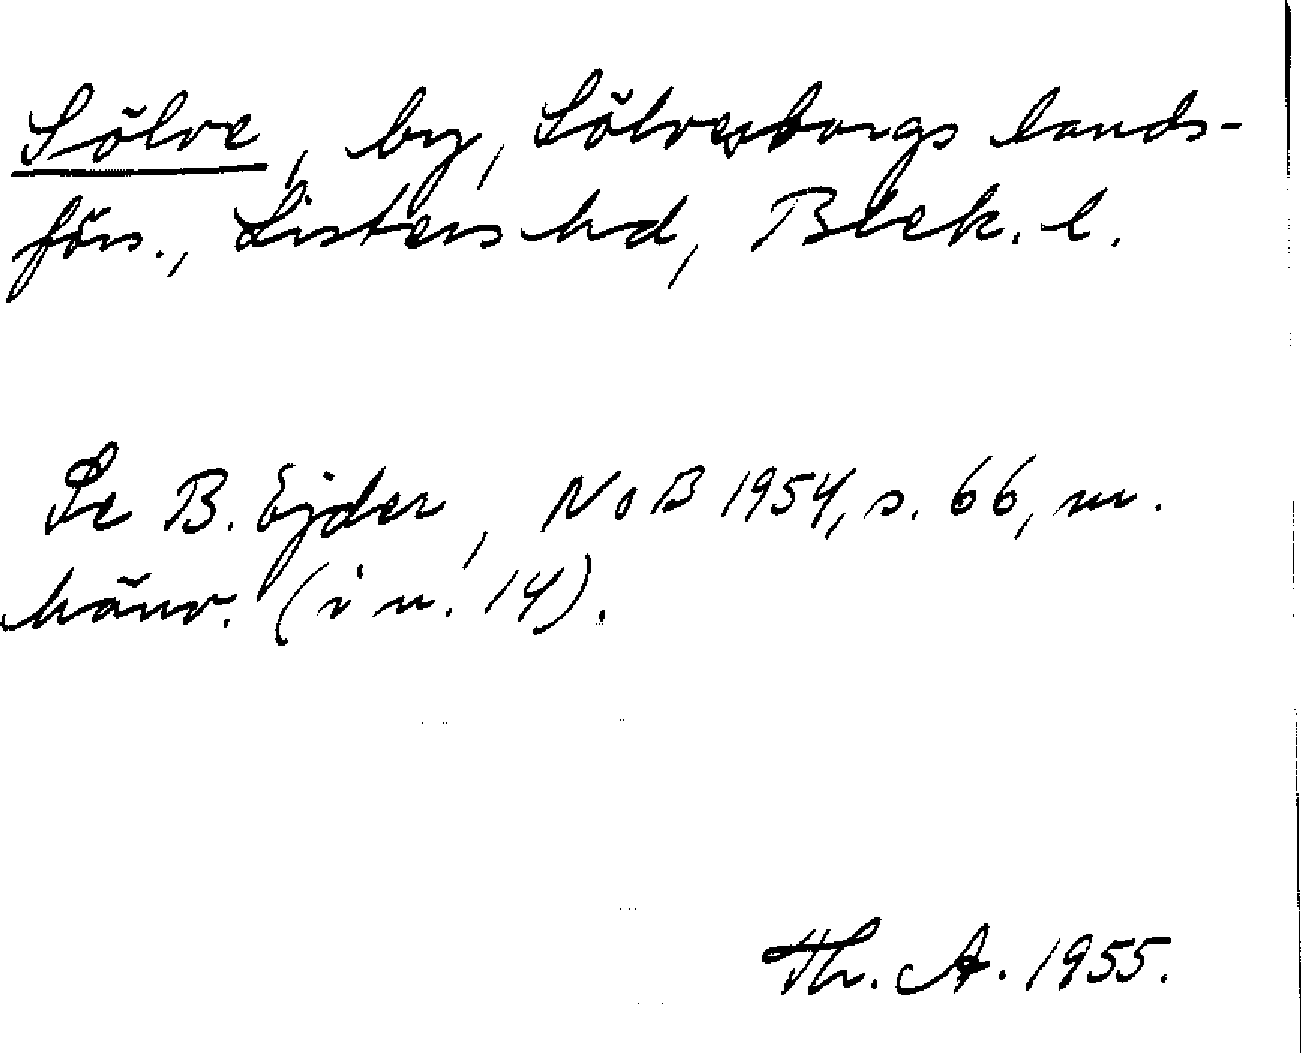 Sölve, by, Sölvesborgs lands-
förs., Listers hd, Blek. l.
Se B. Ejder, NoB 1954, s. 66, m.
hänv. (i n. 14).
Th. A. 1955.